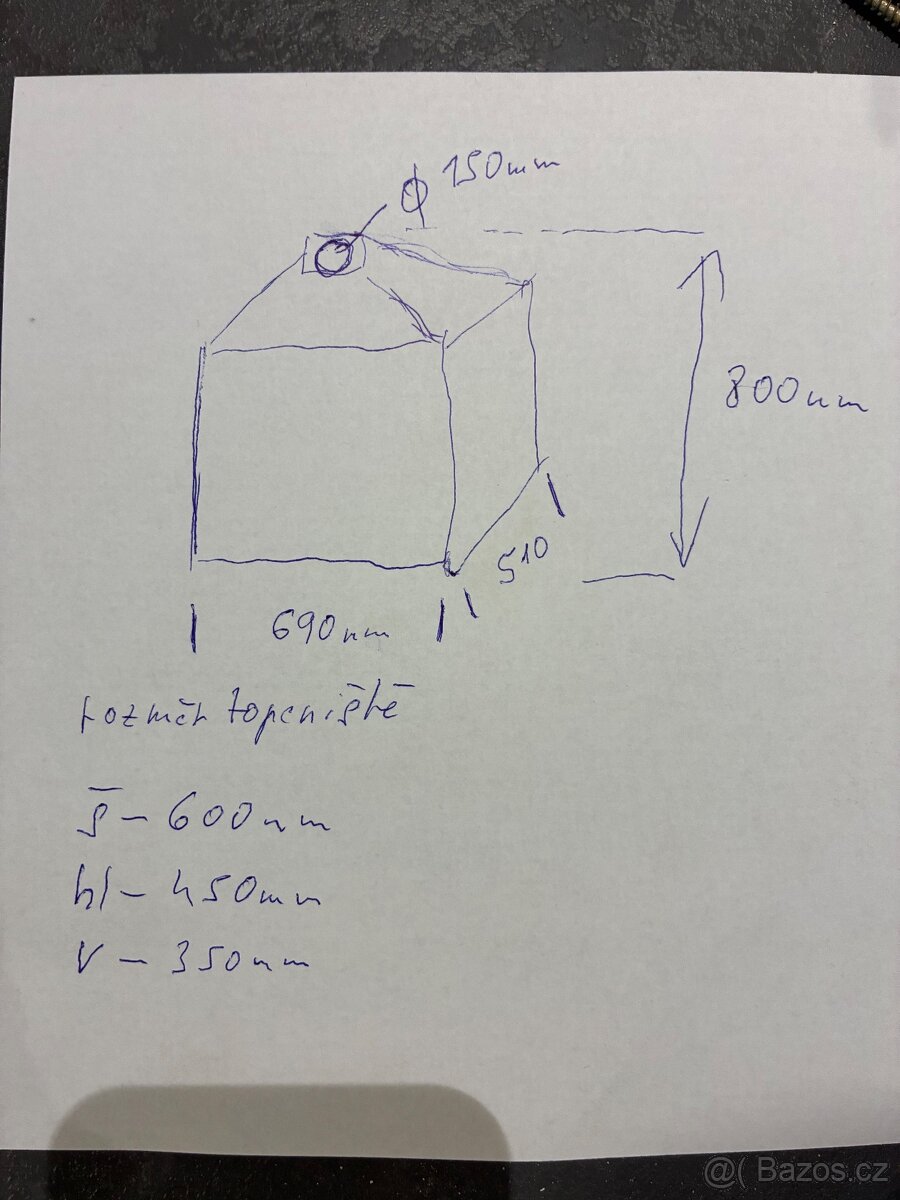 ϕ 150mm
800mm
510
690mm
rozměr topeniště
š - 600mm
hl - 450mm
V - 350mm
@( Bazos.cz